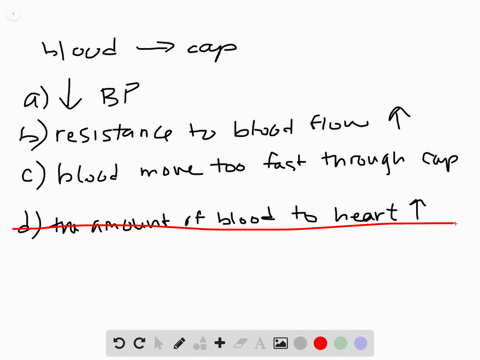 blood → cap
a) ↓ BP
b) resistance to blood flow ↑
c) blood move too fast through cap
d) the amount of blood to heart ↑